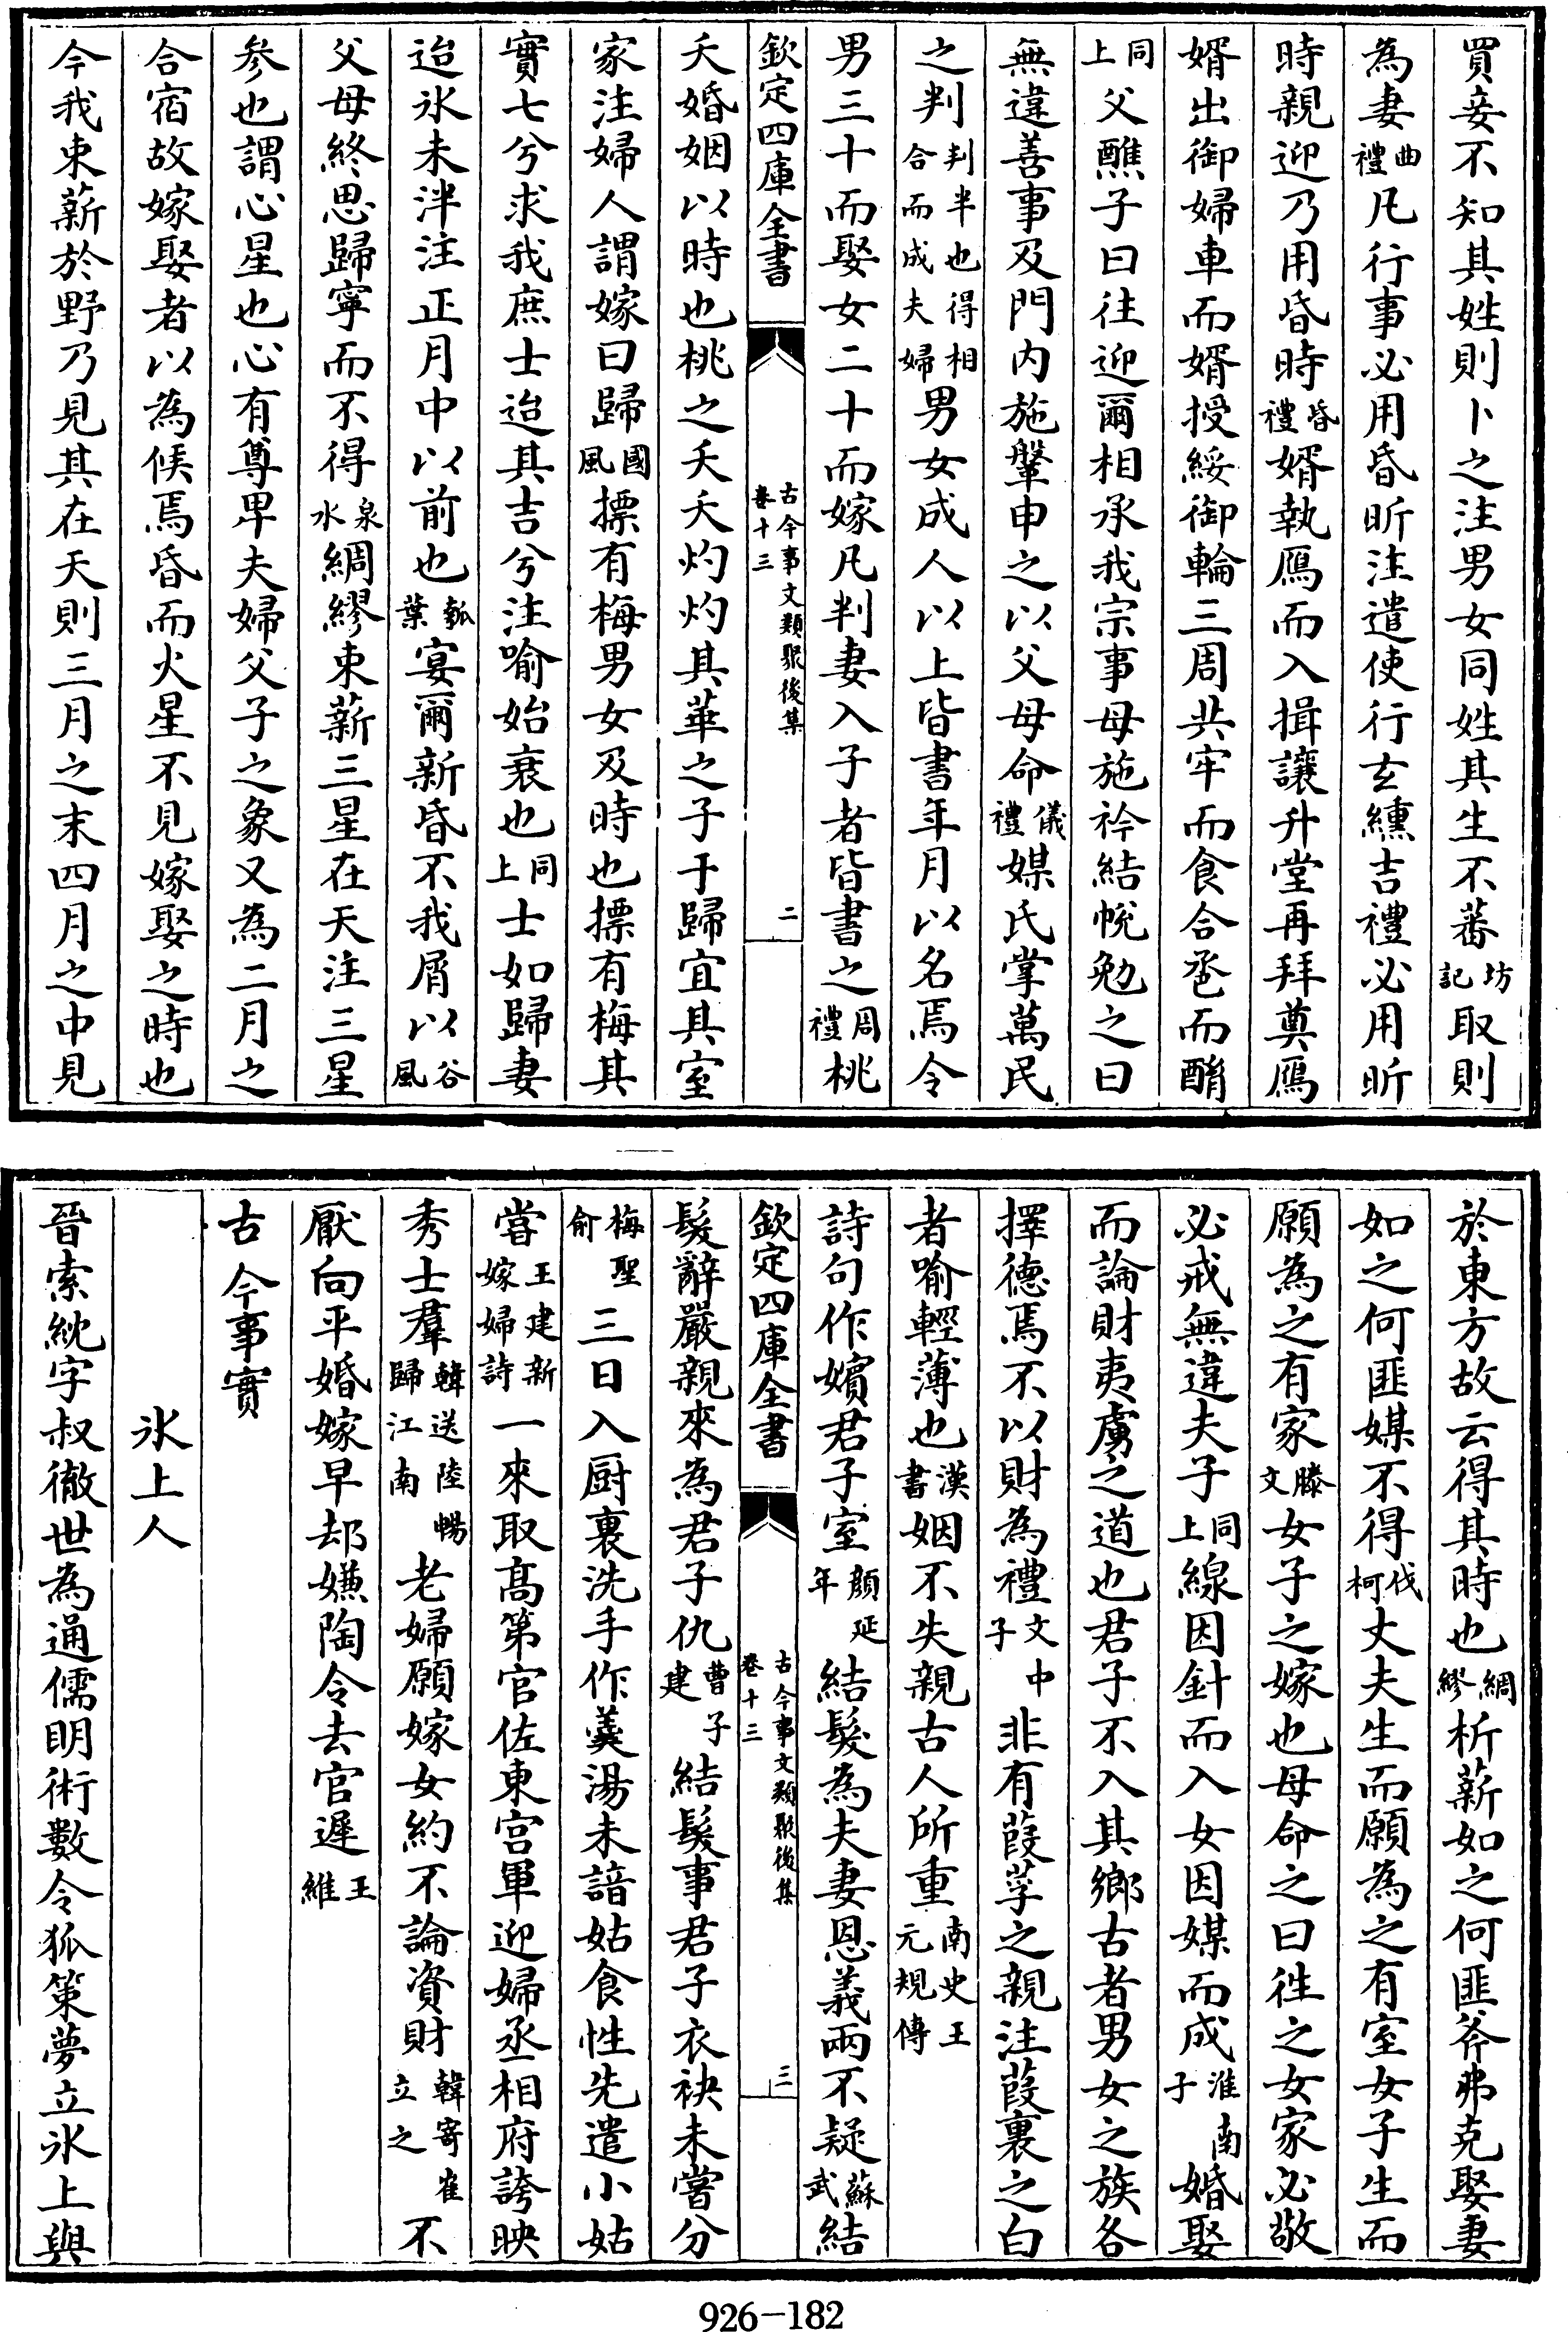 買妾不知其姓則卜之注男女同姓其生不蕃坊記取則
為妻曲禮凡行事必用昏昕注遣使行玄纁吉禮必用昕
時親迎乃用昏時昏禮婿執鴈而入揖讓升堂再拜奠鴈
婿出御婦車而婿授綏御輪三周共牢而食合巹而酳
同上父醮子曰往迎爾相承我宗事母施衿結帨勉之曰
無違善事及門内施鞶申之以父母命儀禮媒氏掌萬民
之判判半也得相合而成夫婦男女成人以上皆書年月以名焉令
男三十而娶女二十而嫁凡判妻入子者皆書之周禮桃
欽定四庫全書 古今事文類聚後集卷十三 二
夭婚姻以時也桃之夭夭灼灼其華之子于歸宜其室
家注婦人謂嫁曰歸國風摽有梅男女及時也摽有梅其
實七兮求我庶士迨其吉兮注喻始衰也同上士如歸妻
迨氷未泮注正月中以前也匏葉宴爾新昏不我屑以谷風
父母終思歸寧而不得泉水綢繆束薪三星在天注三星
参也謂心星也心有尊卑夫婦父子之象又為二月之
合宿故嫁娶者以為候焉昏而火星不見嫁娶之時也
今我束薪於野乃見其在天則三月之末四月之中見
於東方故云得其時也綢繆析薪如之何匪斧弗克娶妻
如之何匪媒不得伐柯丈夫生而願為之有室女子生而
願為之有家滕文女子之嫁也母命之曰徃之女家必敬
必戒無違夫子同上線因針而入女因媒而成淮南子婚娶
而論財夷虜之道也君子不入其鄉古者男女之族各
擇德焉不以財為禮文中子非有葭莩之親注葭裏之白
者喻輕薄也漢書姻不失親古人所重南史王元規傳
詩句作嬪君子室顔延年結髮為夫妻恩義兩不疑蘇武結
欽定四庫全書 古今事文類聚後集卷十三 三
髮辭嚴親來為君子仇曹子建結髮事君子衣袂未嘗分
梅聖俞三日入厨裏洗手作羮湯未諳姑食性先遣小姑
嘗王建新嫁婦詩一來取髙第官佐東宫軍迎婦丞相府誇映
秀士羣韓送陸暢歸江南老婦願嫁女約不論資財韓寄崔立之不
厭向平婚嫁早却嫌陶令去官遲王維
古今事實
氷上人
晉索紞字叔徹世為通儒明術數令狐策夢立氷上與
926-182